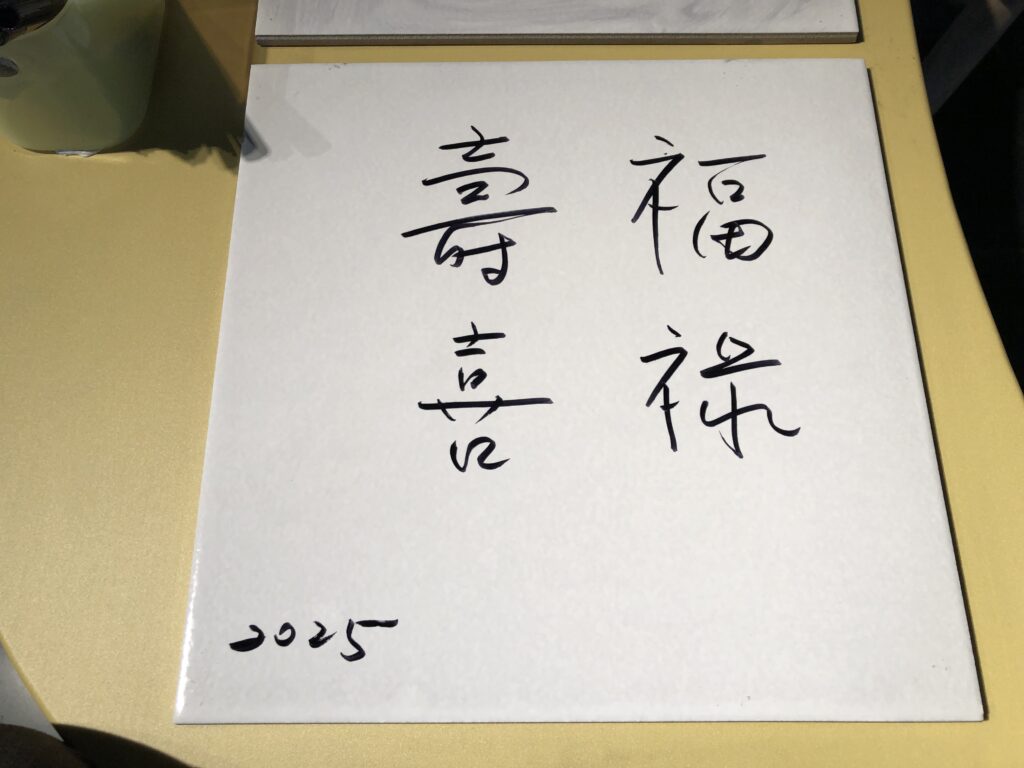 福祿
壽喜
2025